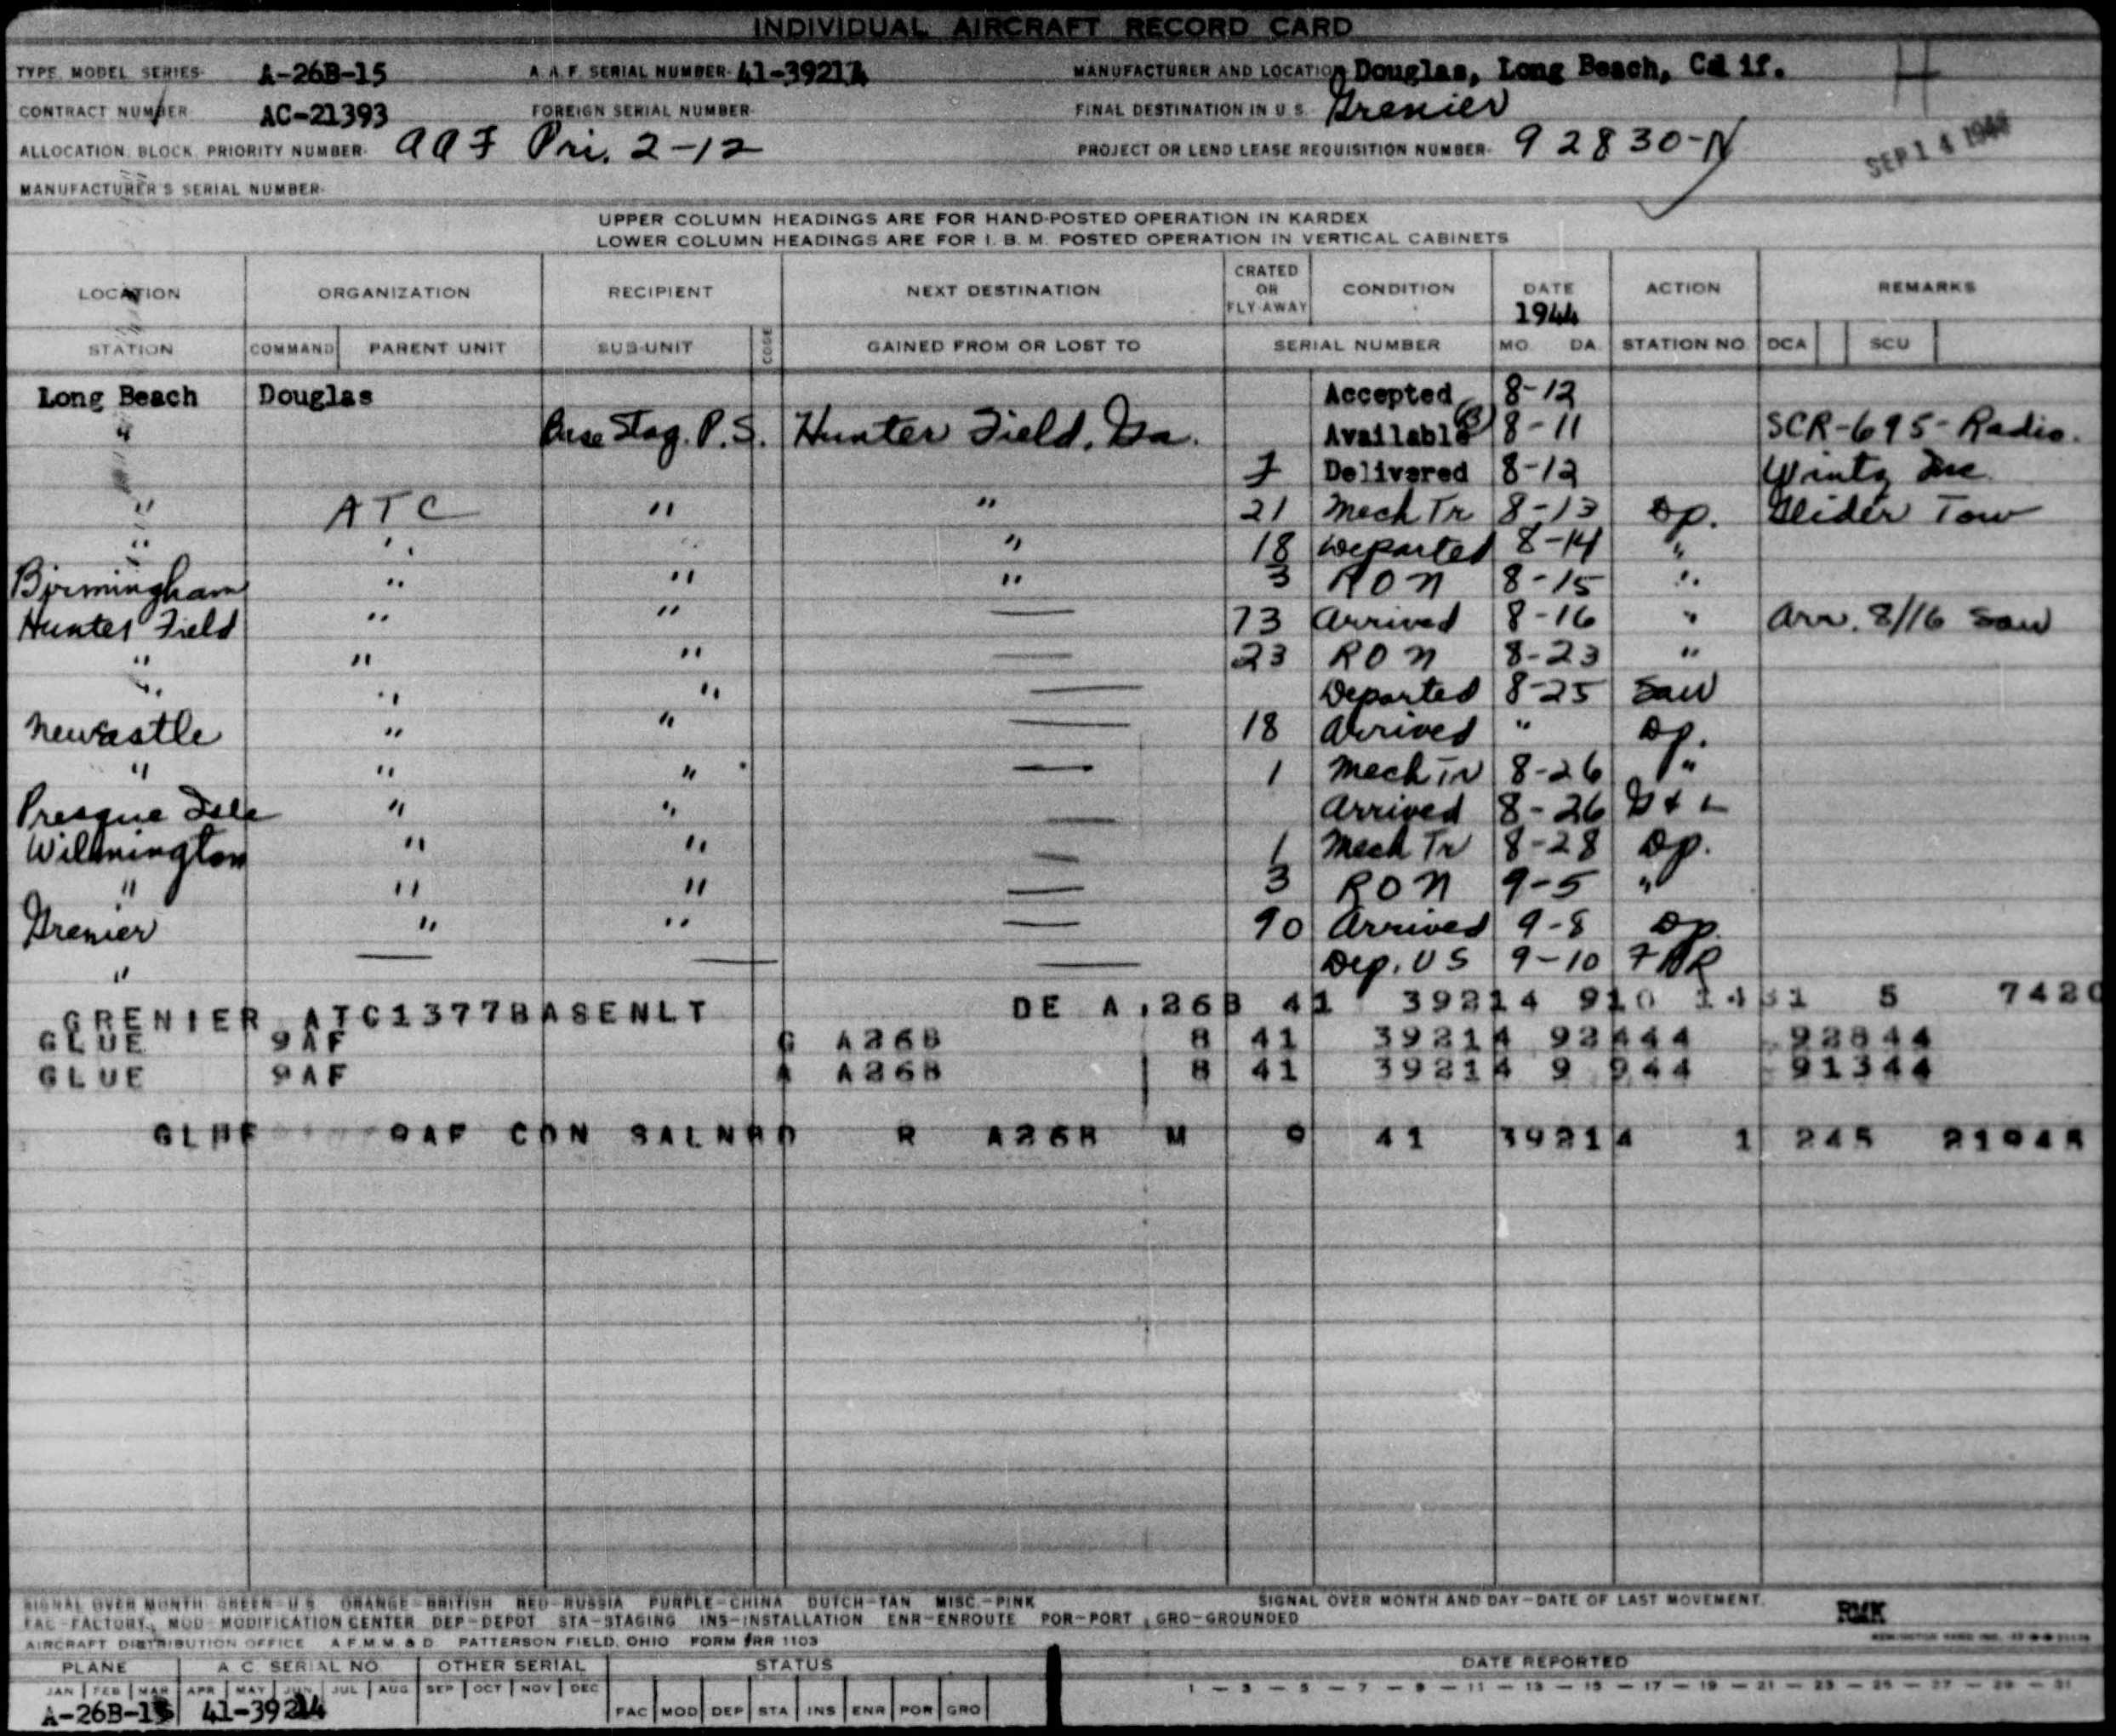 INDIVIDUAL AIRCRAFT RECORD CARD
TYPE, MODEL, SERIES- A-26B-15 A. A. F. SERIAL NUMBER- 41-39214 MANUFACTURER AND LOCATION Douglas, Long Beach, Calif.
CONTRACT NUMBER AC-21393 FOREIGN SERIAL NUMBER- FINAL DESTINATION IN U S Grenier
ALLOCATION, BLOCK, PRIORITY NUMBER- AAF Pri. 2-12 PROJECT OR LEND LEASE REQUISITION NUMBER- 92830-N
SEP 14 1944
MANUFACTURER'S SERIAL NUMBER-
UPPER COLUMN HEADINGS ARE FOR HAND-POSTED OPERATION IN KARDEX
LOWER COLUMN HEADINGS ARE FOR I. B. M. POSTED OPERATION IN VERTICAL CABINETS
LOCATION ORGANIZATION RECIPIENT NEXT DESTINATION CRATED OR FLY-AWAY CONDITION DATE 1944 ACTION REMARKS
STATION COMMAND PARENT UNIT SUB-UNIT CODE GAINED FROM OR LOST TO SERIAL NUMBER MO. DA. STATION NO DCA SCU
Long Beach Douglas Accepted 8-12
" Base Stag. P.S. Hunter Field, Ga. Available (B) 8-11 SCR-695-Radio.
Delivered 8-12
" ATC " " 21 Mech Tr 8-13 Op. Glider Tow
" " " " 18 Departed 8-14 "
Birmingham " " " 3 RON 8-15 "
Hunter Field " " — 73 Arrived 8-16 " Arr. 8/16 Saw
" " " — 23 RON 8-23 "
" " " — Departed 8-25 Saw
Newcastle " " — 18 Arrived " Op.
" " " — 1 Mech Tr 8-26 "
Presque Isle " " — Arrived 8-26 G & L
Wilmington " " — 1 Mech Tr 8-28 Op.
" " " — 3 RON 9-5 "
Grenier " " — 90 Arrived 9-8 Op.
" — — — Dep. US 9-10
GRENIER ATC1377BASENLT DE A 26B 41 39214 910 1431 5 7420
GLUE 9AF G A26B 8 41 39214 92444 92844
GLUE 9AF A A26B 8 41 39214 9 944 91344
GLUE 9AF CON SALNBD R A26B M 9 41 39214 1 245 21945
SIGNAL OVER MONTH GREEN-U S ORANGE-BRITISH RED-RUSSIA PURPLE-CHINA DUTCH-TAN MISC.-PINK SIGNAL OVER MONTH AND DAY-DATE OF LAST MOVEMENT.
FAC-FACTORY, MOD-MODIFICATION CENTER DEP-DEPOT STA-STAGING INS-INSTALLATION ENR-ENROUTE POR-PORT GRO-GROUNDED RMK
AIRCRAFT DISTRIBUTION OFFICE A F. M. M. & D. PATTERSON FIELD, OHIO FORM RR 1103
PLANE A C SERIAL NO OTHER SERIAL STATUS DATE REPORTED
JAN FEB MAR APR MAY JUN JUL AUG SEP OCT NOV DEC 1 - 3 - 5 - 7 - 9 - 11 - 13 - 15 - 17 - 19 - 21 - 23 - 25 - 27 - 29 - 31
A-26B-15 41-39214 FAC MOD DEP STA INS ENR POR GRO